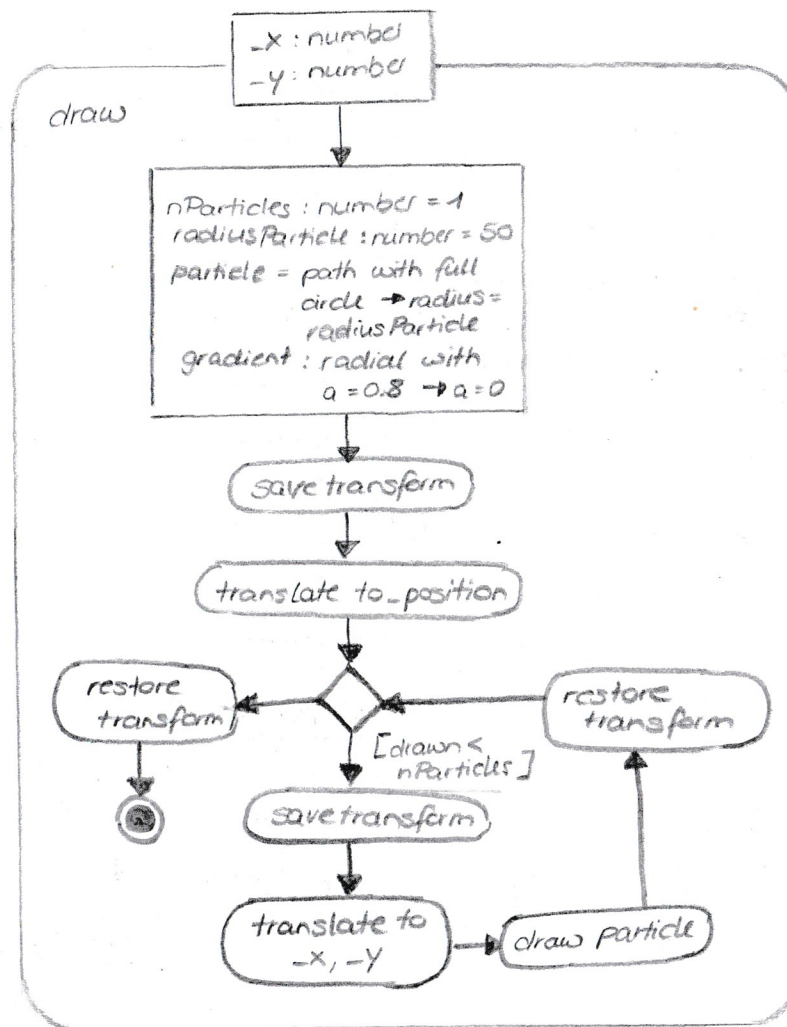 _x : number
_y : number
draw
nParticles : number = 1
radiusParticle : number = 50
particle = path with full
circle → radius =
radiusParticle
gradient : radial with
a = 0.8 → a = 0
save transform
translate to _position
restore
transform
restore
transform
[drawn <
nParticles]
save transform
translate to
_x, _y
draw particle